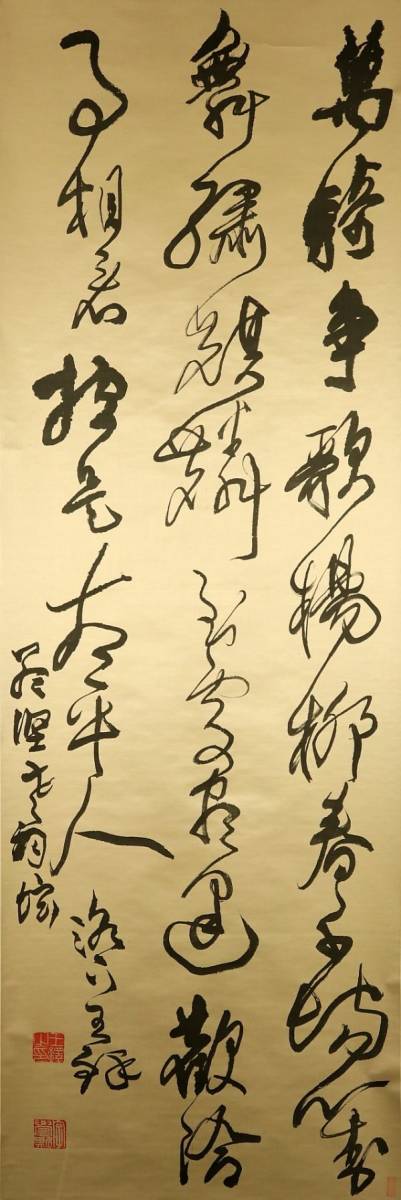 萬騎爭歌楊柳春千場對
舞繡麒麟到處盡逢歡洽
事相看總是太平人
老詞
洛下王鐸